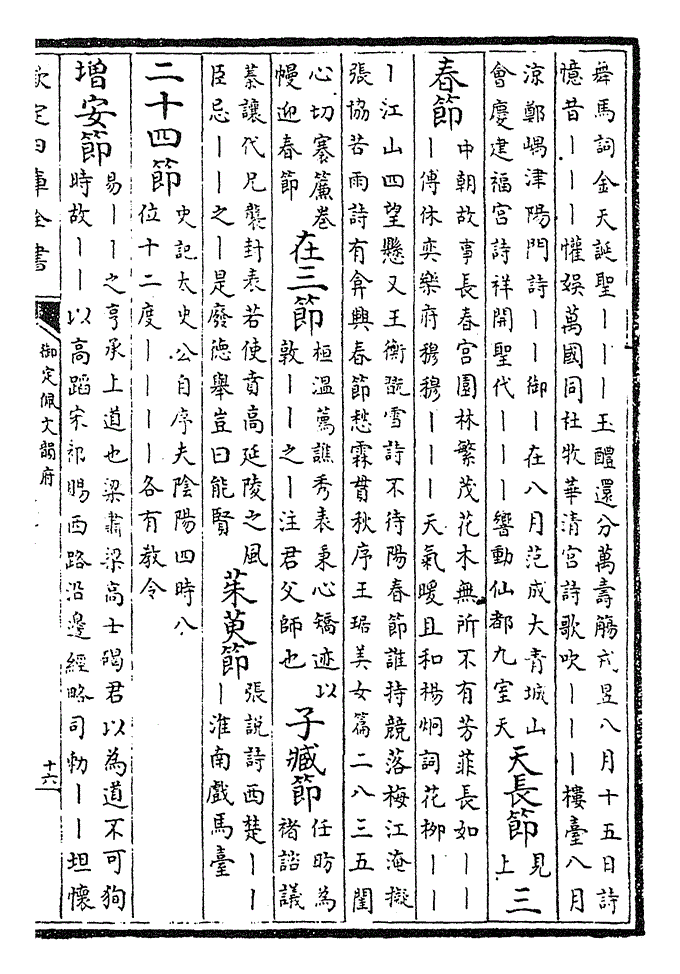 舞馬詞金天誕聖丨丨丨玉醴還分萬壽觴戎昱八月十五日詩
憶昔丨丨丨懽娛萬國同杜牧華清宮詩歌吹丨丨丨樓臺八月
涼鄭嵎津陽門詩丨丨御丨在八月范成大青城山
會慶建福宮詩祥開聖代丨丨丨響動仙都九室天
天長節
見
上
三
春節
中朝故事長春宮園林繁茂花木無所不有芳菲長如丨丨
丨傅休奕樂府穆穆丨丨丨天氣暖且和楊炯詞花柳丨丨
丨江山四望懸又王衡翫雪詩不待陽春節誰持競落梅江淹擬
張協苦雨詩有弇興春節愁霖貫秋序王琚美女篇二八三五閨
心切褰簾卷
幔迎春節
在三節
桓溫薦譙秀表秉心矯迹以
敦丨丨之丨注君父師也
子臧節
任昉為
褚諮議
蓁讓代兄襲封表若使賁高延陵之風
臣忌丨丨之丨是廢德舉豈曰能賢
茱萸節
張說詩西楚丨丨
丨淮南戲馬臺
二十四節
史記太史公自序夫陰陽四時八
位十二度丨丨丨丨各有教令
增安節
易丨丨之亨承上道也梁肅梁高士碣君以為道不可狥
時故丨丨以高蹈宋祁賜西路沿邊經略司勅丨丨坦懷
欽定四庫全書
御定佩文韻府
十六